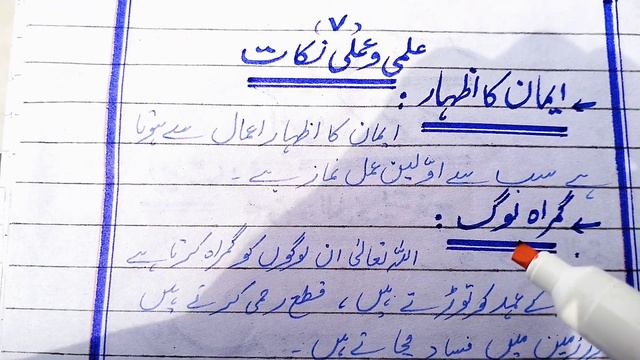 (۷)
علمی و عملی نکات
← ایمان کا اظہار :
ایمان کا اظہار اعمال سے ہوتا
ہے سب سے اوّلین عمل نماز ہے ۔
← گمراہ لوگ :
اللہ تعالیٰ ان لوگوں کو گمراہ کرتا ہے
کے عہد کو توڑتے ہیں ، قطع رحمی کرتے ہیں
زمین میں فساد مچاتے ہیں ۔